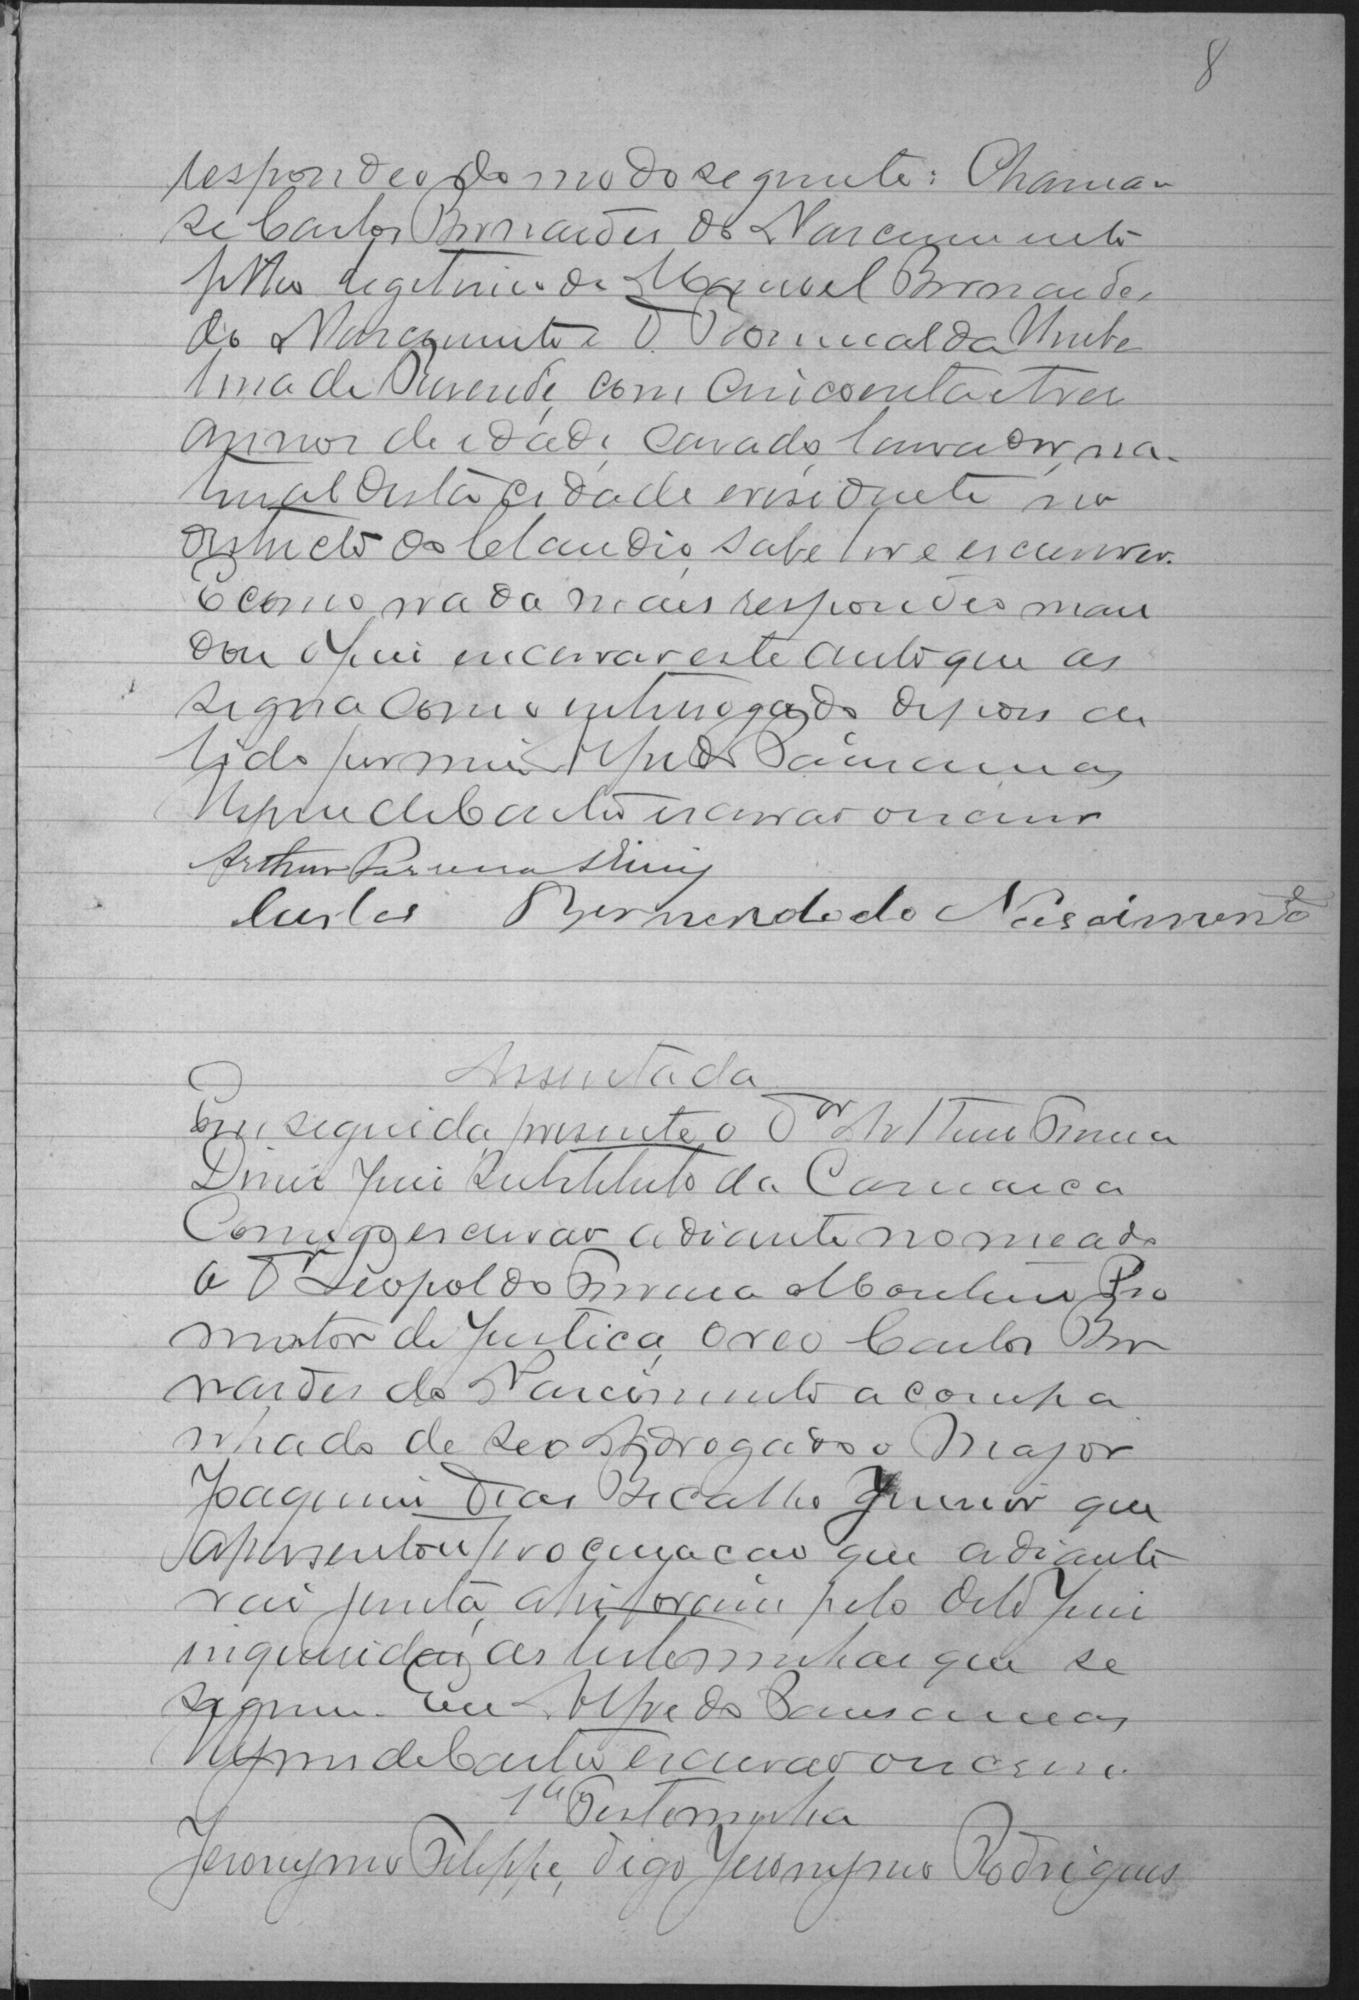 8
respondeo do modo seguinte: Chamar-
se Carlos Bernardes do Nascimento
filho legitimo de Manoel Bernardes
do Nascimento e D. Romualda Umbe
lina de Rezende, com cincoenta e tres
annos de idade, casado, lavrador, na-
tural desta cidade e residente no
districto do Claudio, sabe ler e escrever.
E como nada mais respondeo man
dou o Juiz encerrar este auto que as
signa com o interrogado depois de
lido por mim Alfredo
de Castro escrivão o escrevi
Arthur Diniz
Carlos Bernardes do Nascimento
Assentada
Em seguida, presente o Dr Arthur
Diniz Juiz Substituto da Comarca
Commigo escrivão adiante nomeado
o Dr Leopoldo Monteiro Pro
motor de Justiça, o reo Carlos Ber
nardes do Nascimento acompa
nhado de seo Advogado o Major
Joaquim Dias Bicalho Junior que
apresentou procuração que adiante
vai junta, ahi foram pelo dito Juiz
inqueridas as testemunhas que se
seguem. Eu Alfredo
de Castro escrivão o escrevi.
1a Testemunha
Jeronymo Felippe, digo Jeronymo Rodrigues